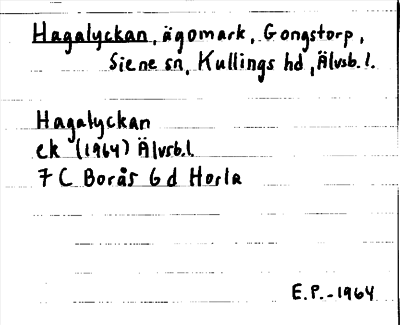 Hagalyckan, ägomark, Gongstorp,
Siene sn, Kullings hd, Älvsb. l.
Hagalyckan
ek (1964) Älvsb. l.
7 C Borås 6 d Horla
E.P. - 1964